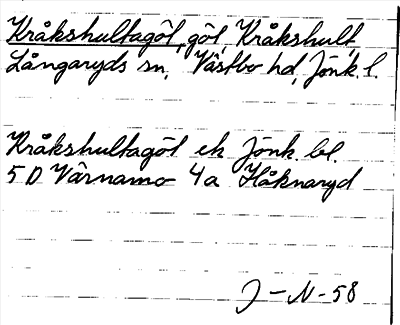 Kråkshultagöl, göl, Kråkshult,
Långaryds sn, Västbo hd, Jönk. l.
Kråkshultagöl ek Jönk. bl.
5 D Värnamo 4a Håknaryd
J-N-58